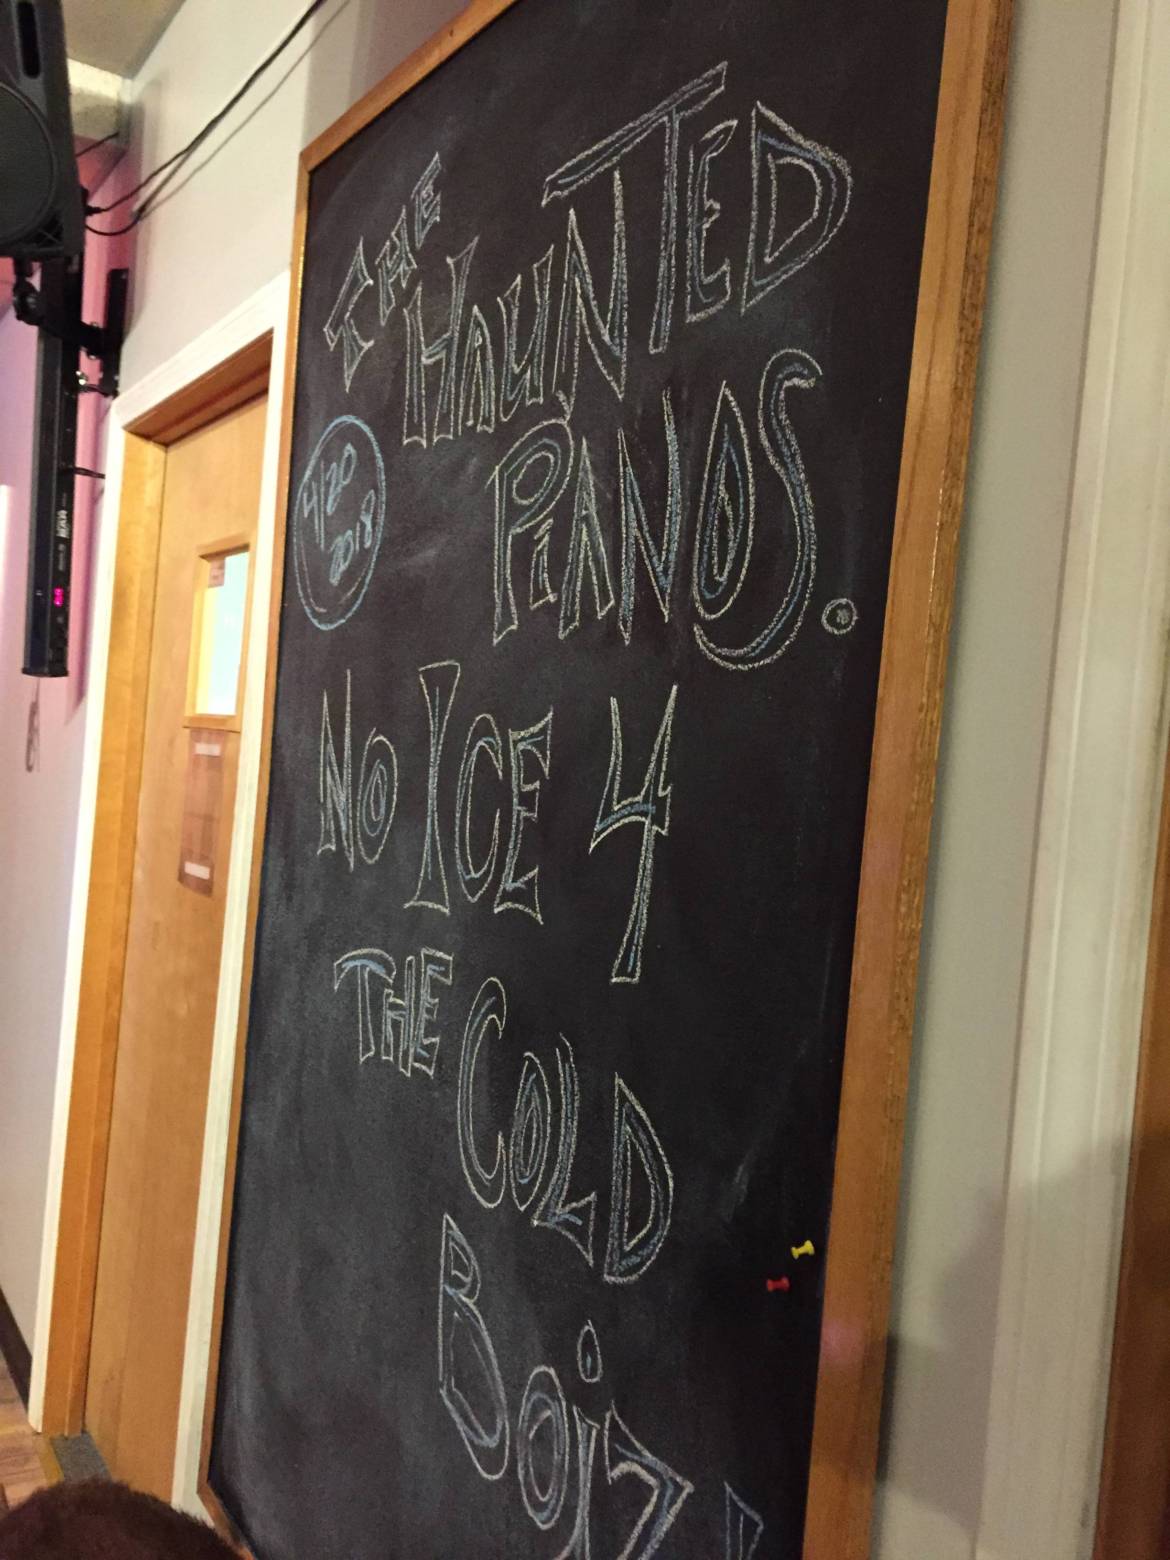 THE HAUNTED
PiANOS.
4/20
2018
No ICE 4
THE COLD